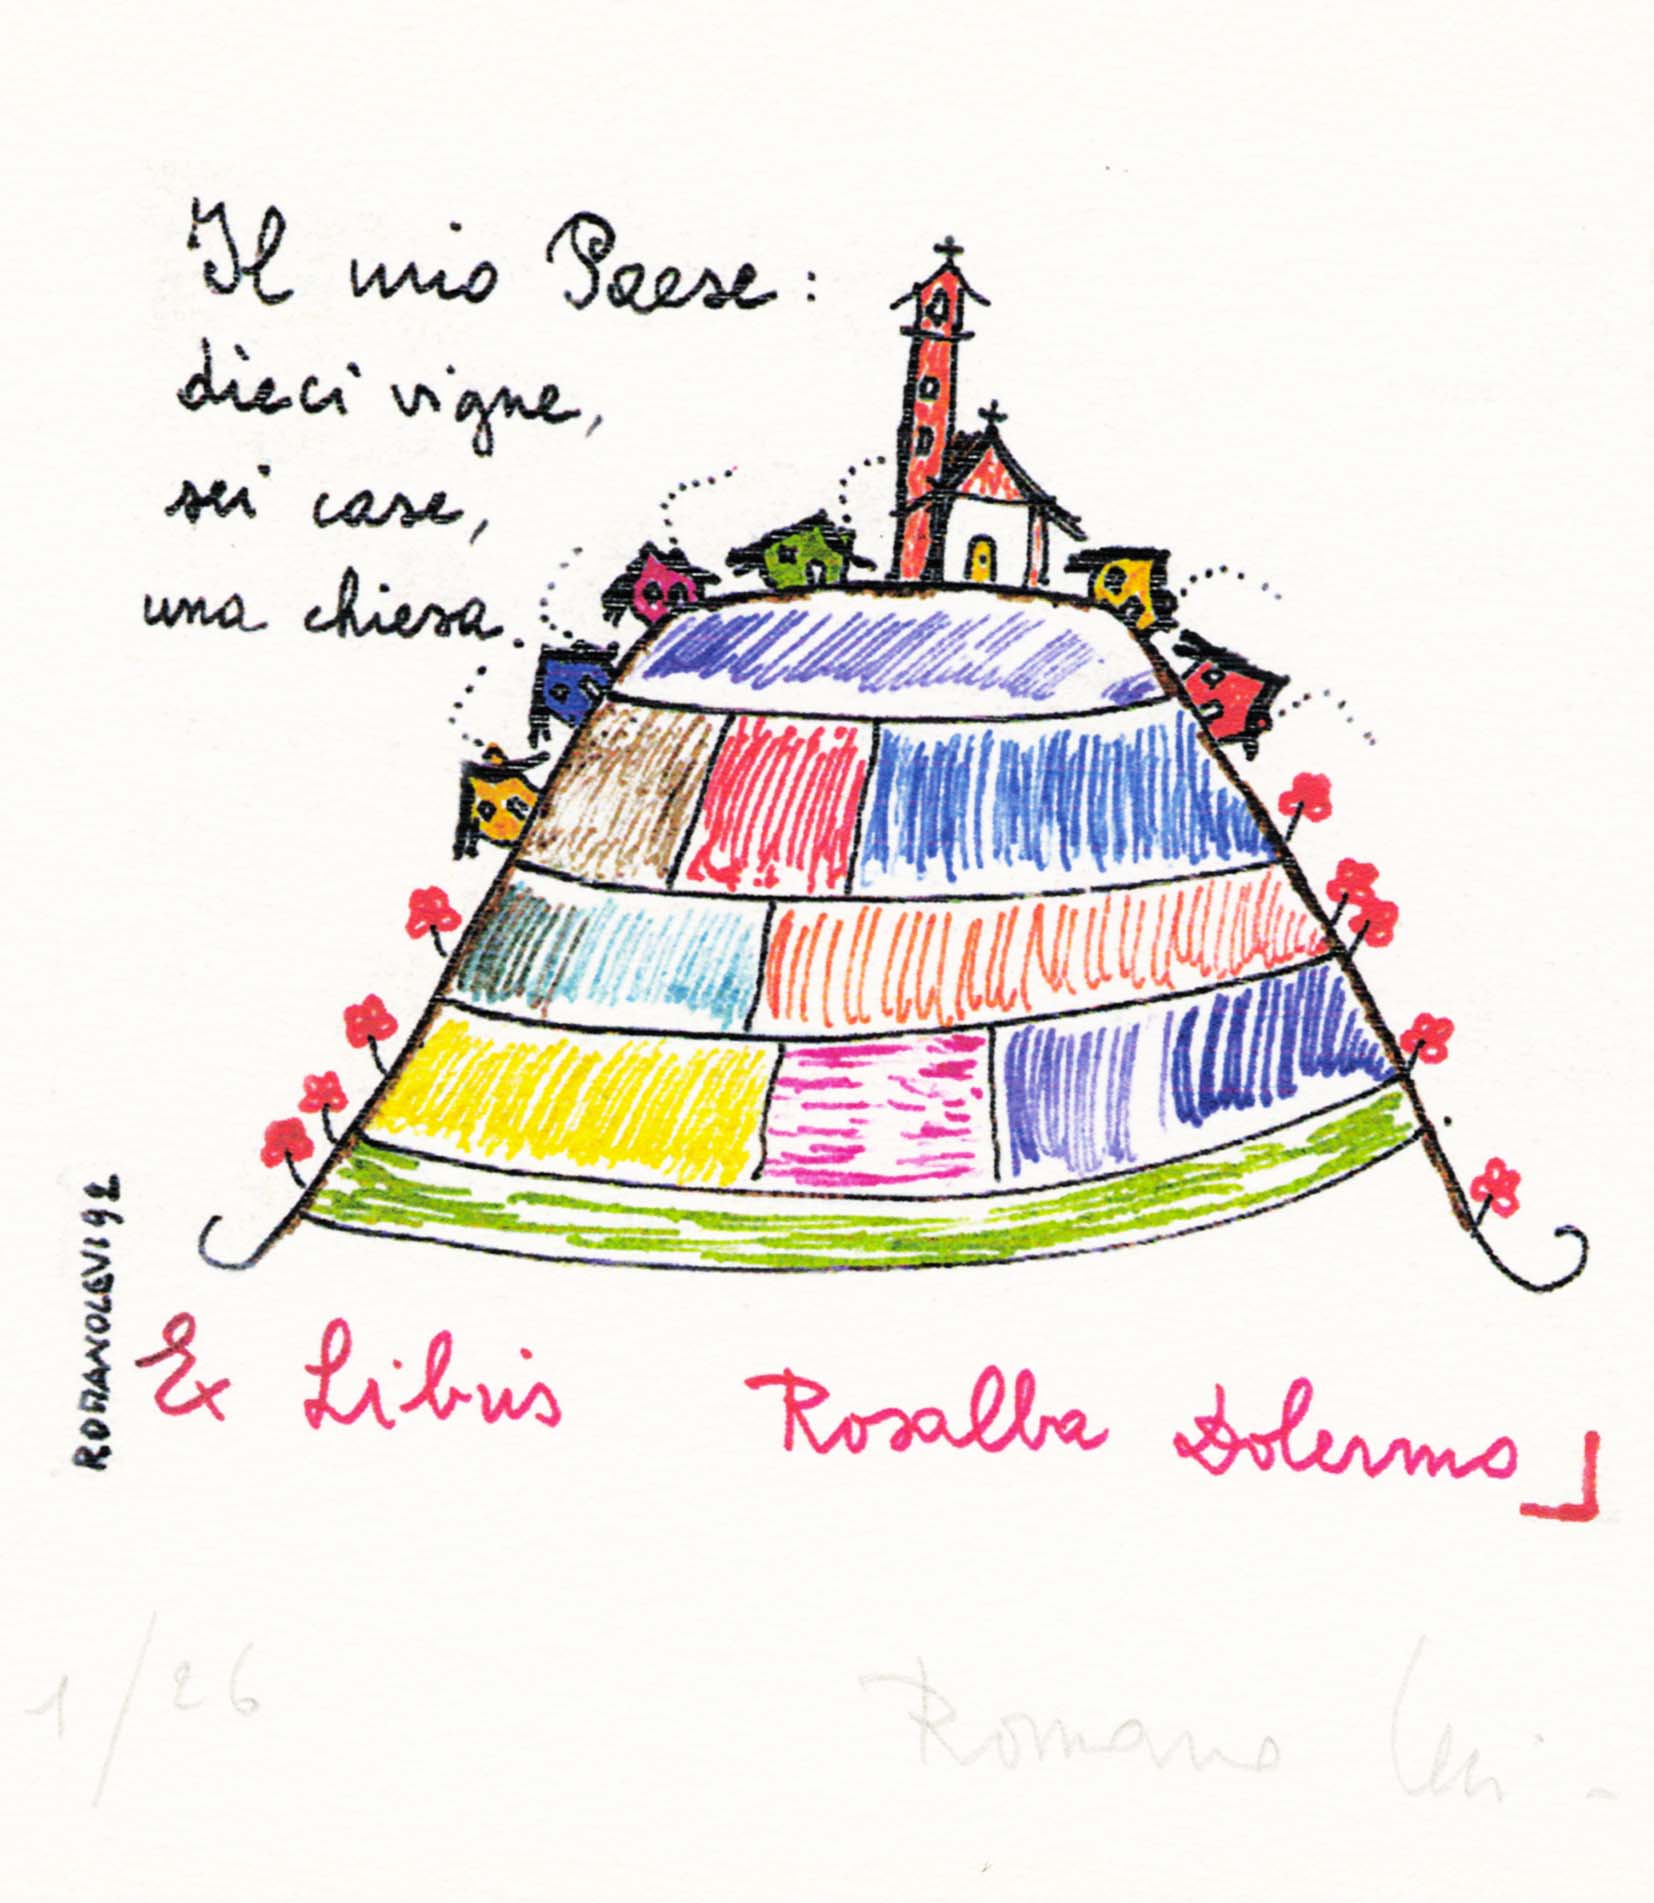 Il mio Paese:
dieci vigne,
sei case,
una chiesa.
ROMANOLEVI 92
Ex Libris Rosalba Dolermo
1/26
Romano Levi